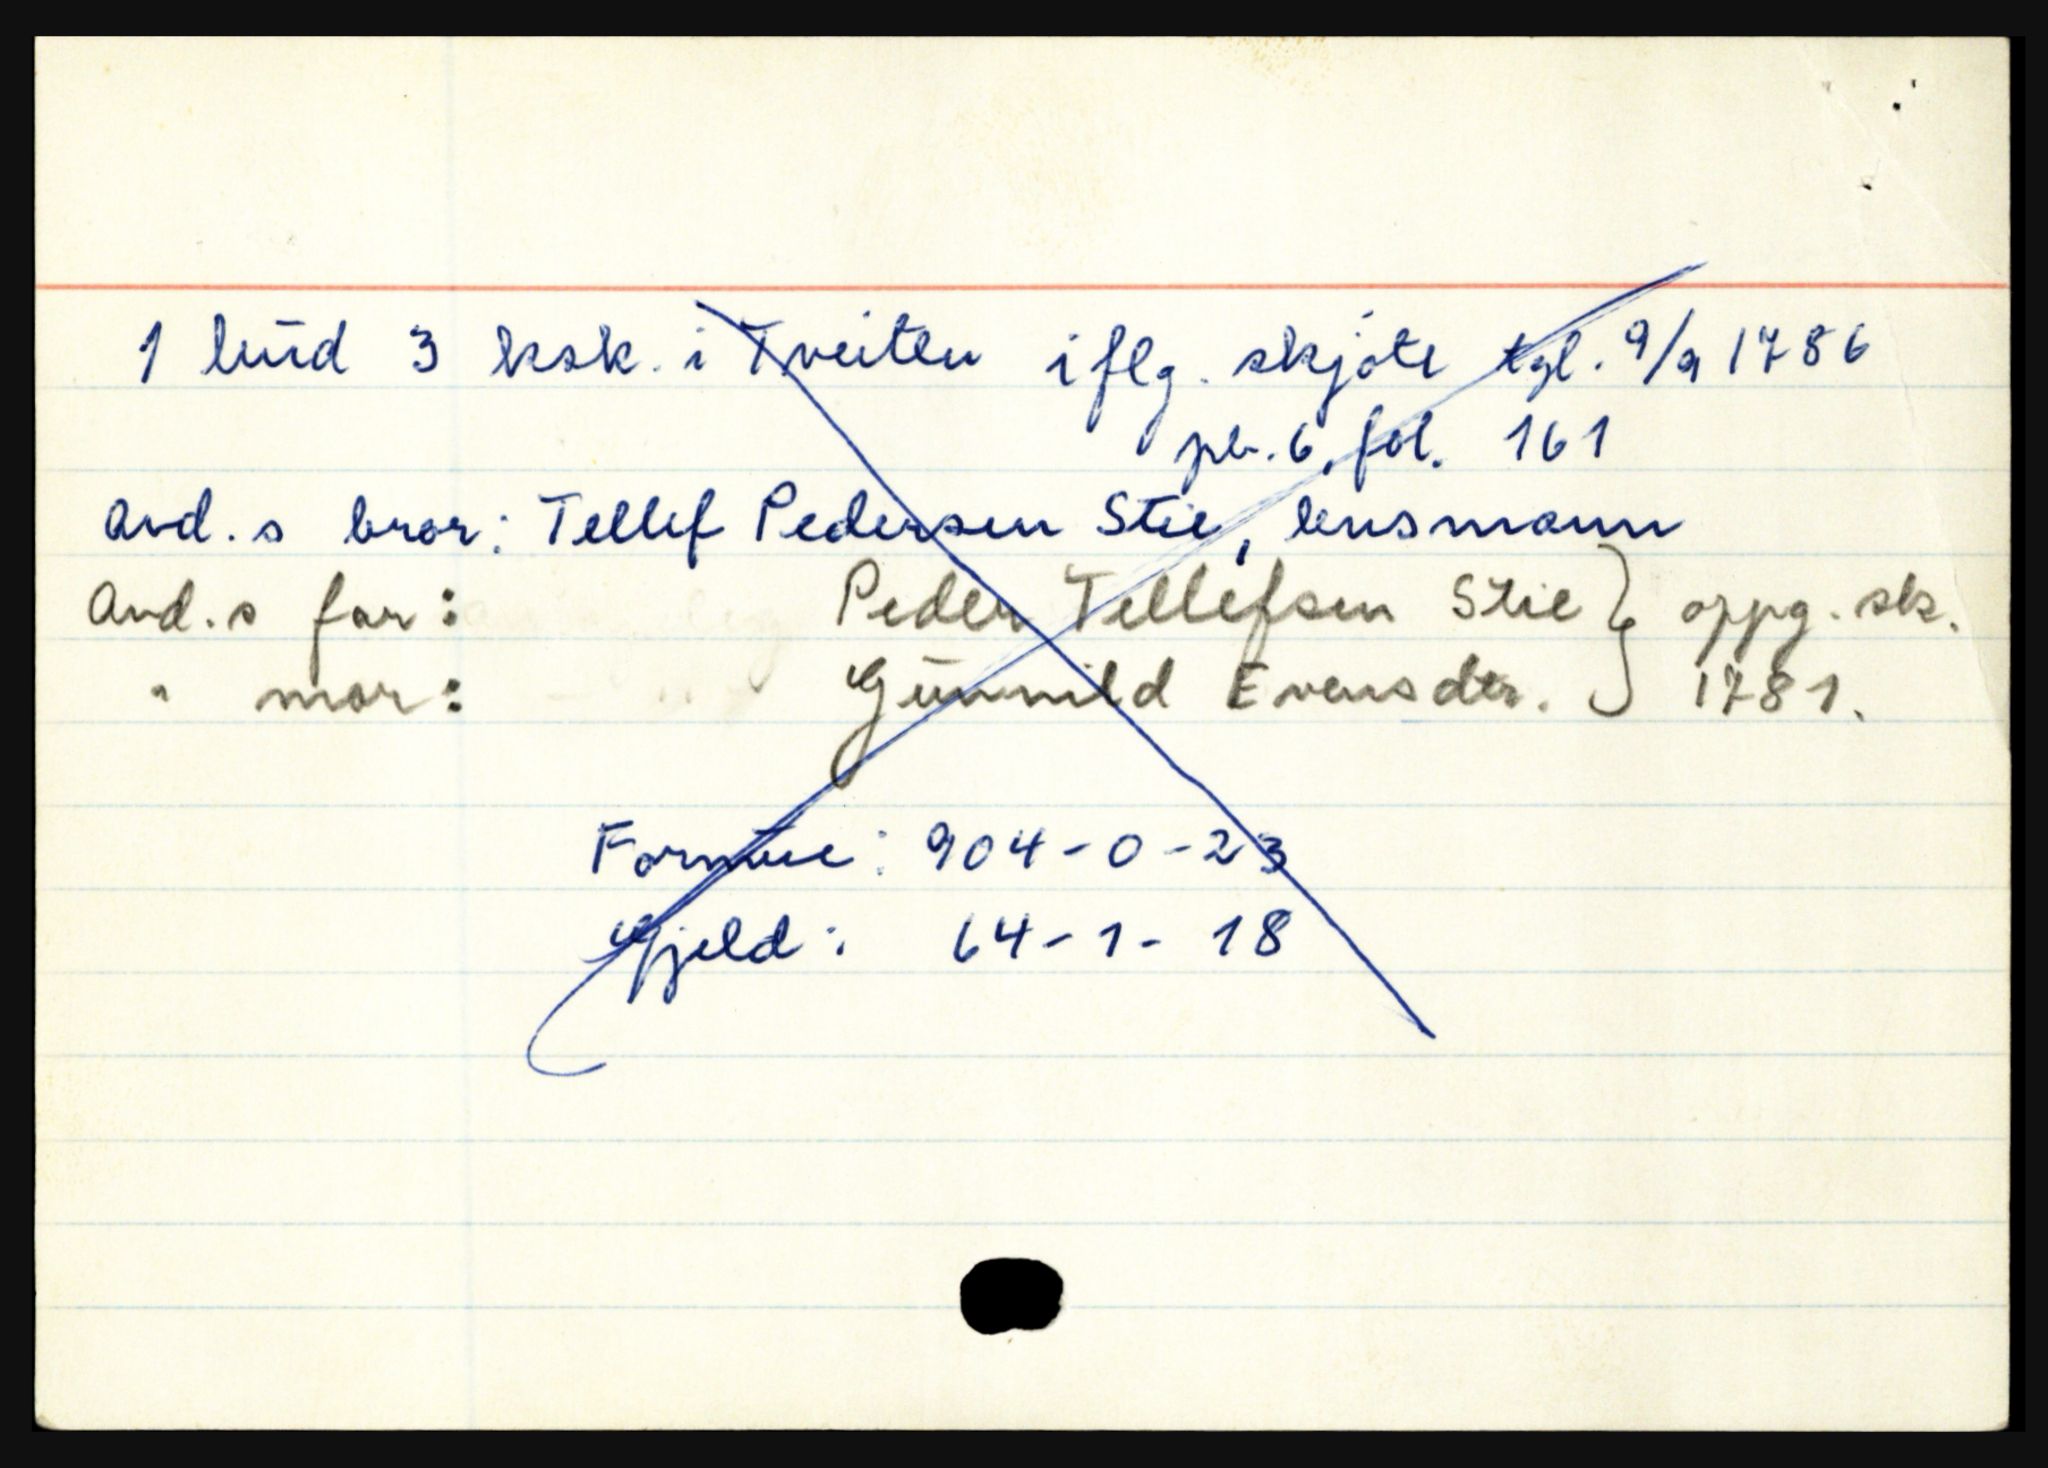 1 hud 3 ksk. i Tveiten iflg. skjøte tgl. 9/9 1786
pb. 6, fol. 161
Avd.s bror: Tellef Pedersen Stie, lensmann
Avd.s far: Peder Tellefsen Stie } oppg. sk.
" mor: Gunnild Evensdtr. } 1781.
Formue: 904-0-23
Gjeld: 64-1-18